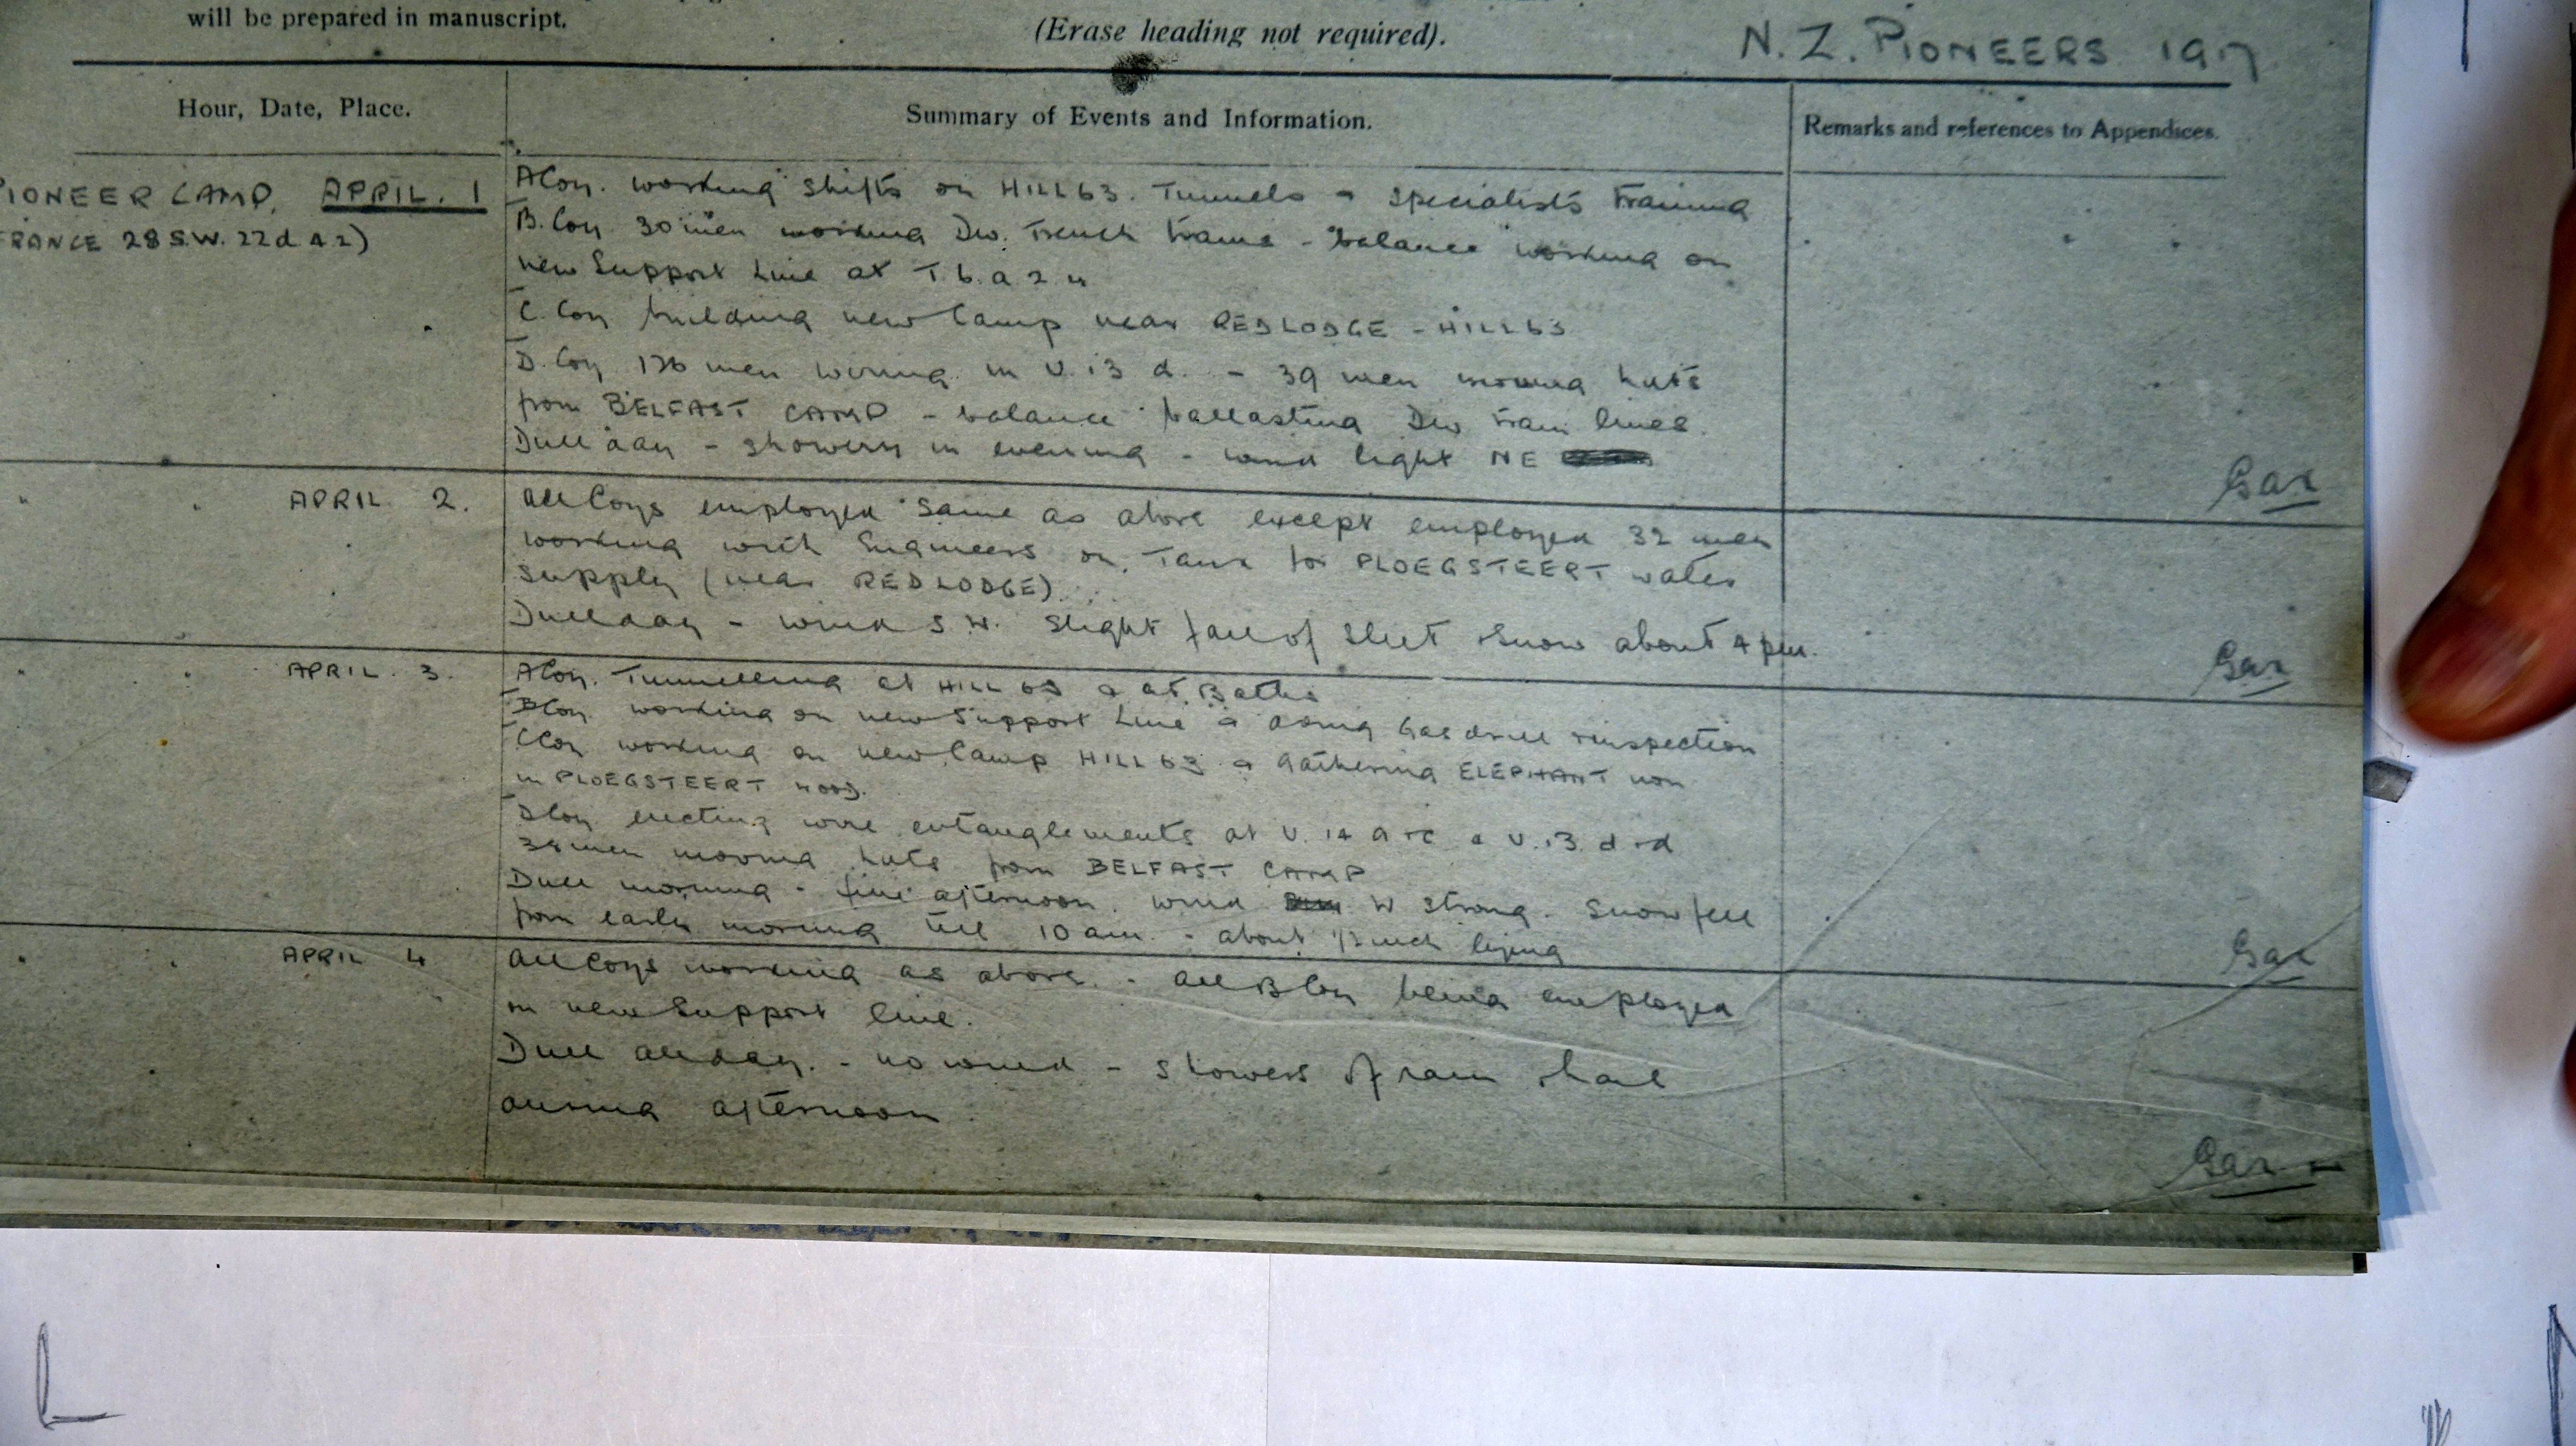 will be prepared in manuscript.
(Erase heading not required).
N. Z. PIONEERS 1917
Hour, Date, Place.
Summary of Events and Information.
Remarks and references to Appendices.
PIONEER CAMP. APRIL. 1
FRANCE 28 S.W. 22d 4.2)
A Coy. working shifts on HILL 63. Tunnels & specialists training
B. Coy 30 men working Div. Trench trams - balance working on
new Support Line at T. 6. a 2 4
C. Coy building new Camp near REDLODGE - HILL 63
D. Coy 176 men wiring in U. 13 d. - 39 men moving huts
from BELFAST CAMP - balance ballasting Div tram lines.
Dull day - showery in evening - wind light NE
Gar
" " APRIL 2.
All Coys employed same as above except employed 32 men
working with Engineers on Tank for PLOEGSTEERT water
supply (near REDLODGE)
Dull day - wind S.W. Slight fall of sleet & snow about 4 pm.
Gar
" " APRIL. 3.
A Coy. Tunnelling at HILL 63 & at Baths
B Coy working on new Support Line & doing Gas drill & inspection
C Coy working on new Camp HILL 63 & gathering ELEPHANT iron
in PLOEGSTEERT wood.
D Coy erecting wire entanglements at U. 14 a & c & U. 13. d & d
38 men moving huts from BELFAST CAMP
Dull morning - fine afternoon. wind W strong. Snow fell
from early morning till 10 am. - about 1/2 inch lying
Gar
" " APRIL 4
All Coys working as above. - All B Coy being employed
on new Support line.
Dull all day. - no wind - showers of rain & hail
during afternoon
Gar